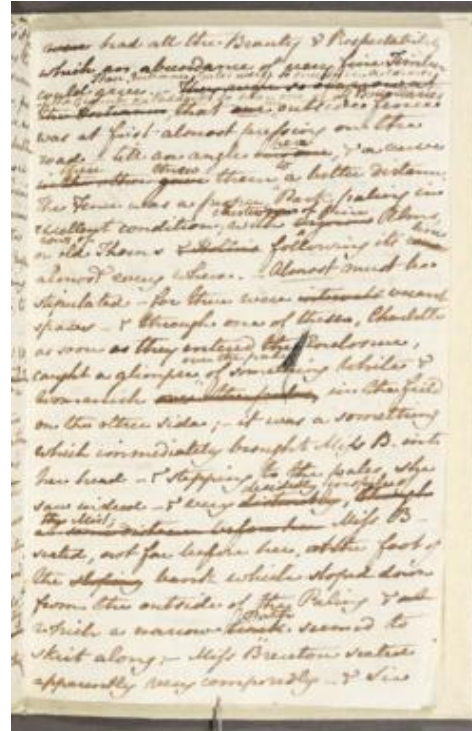 were had all the Beauty & Respectability
which an abundance of very fine Timber
could give.
that outside fence
was at first almost pressing on the
road – till an angle here, & a curve
there threw them a better distance.
The Fence was a proper Park paling in
excellent condition; with clusters of fine Elms,
rows of
or old Thorns following its line
almost every where. – Almost must be
stipulated – for there were intervals vacant
spaces – & through one of these, Charlotte
as soon as they entered the Enclosure,
over the pales
caught a glimpse of something White &
Womanish over the pales, in the field
on the other side; – it was a something
which immediately brought Miss B. into
her head – & stepping to the pales, she
decidedly, in spite of
saw indeed – & very distinctly, though
the Mist;
Miss B –
seated, not far before her, at the foot of
the sloping bank which sloped down
from the outside of the Paling &
Path
which a narrow track seemed to
skirt along; – Miss Brereton seated
apparently very composedly – & Sir